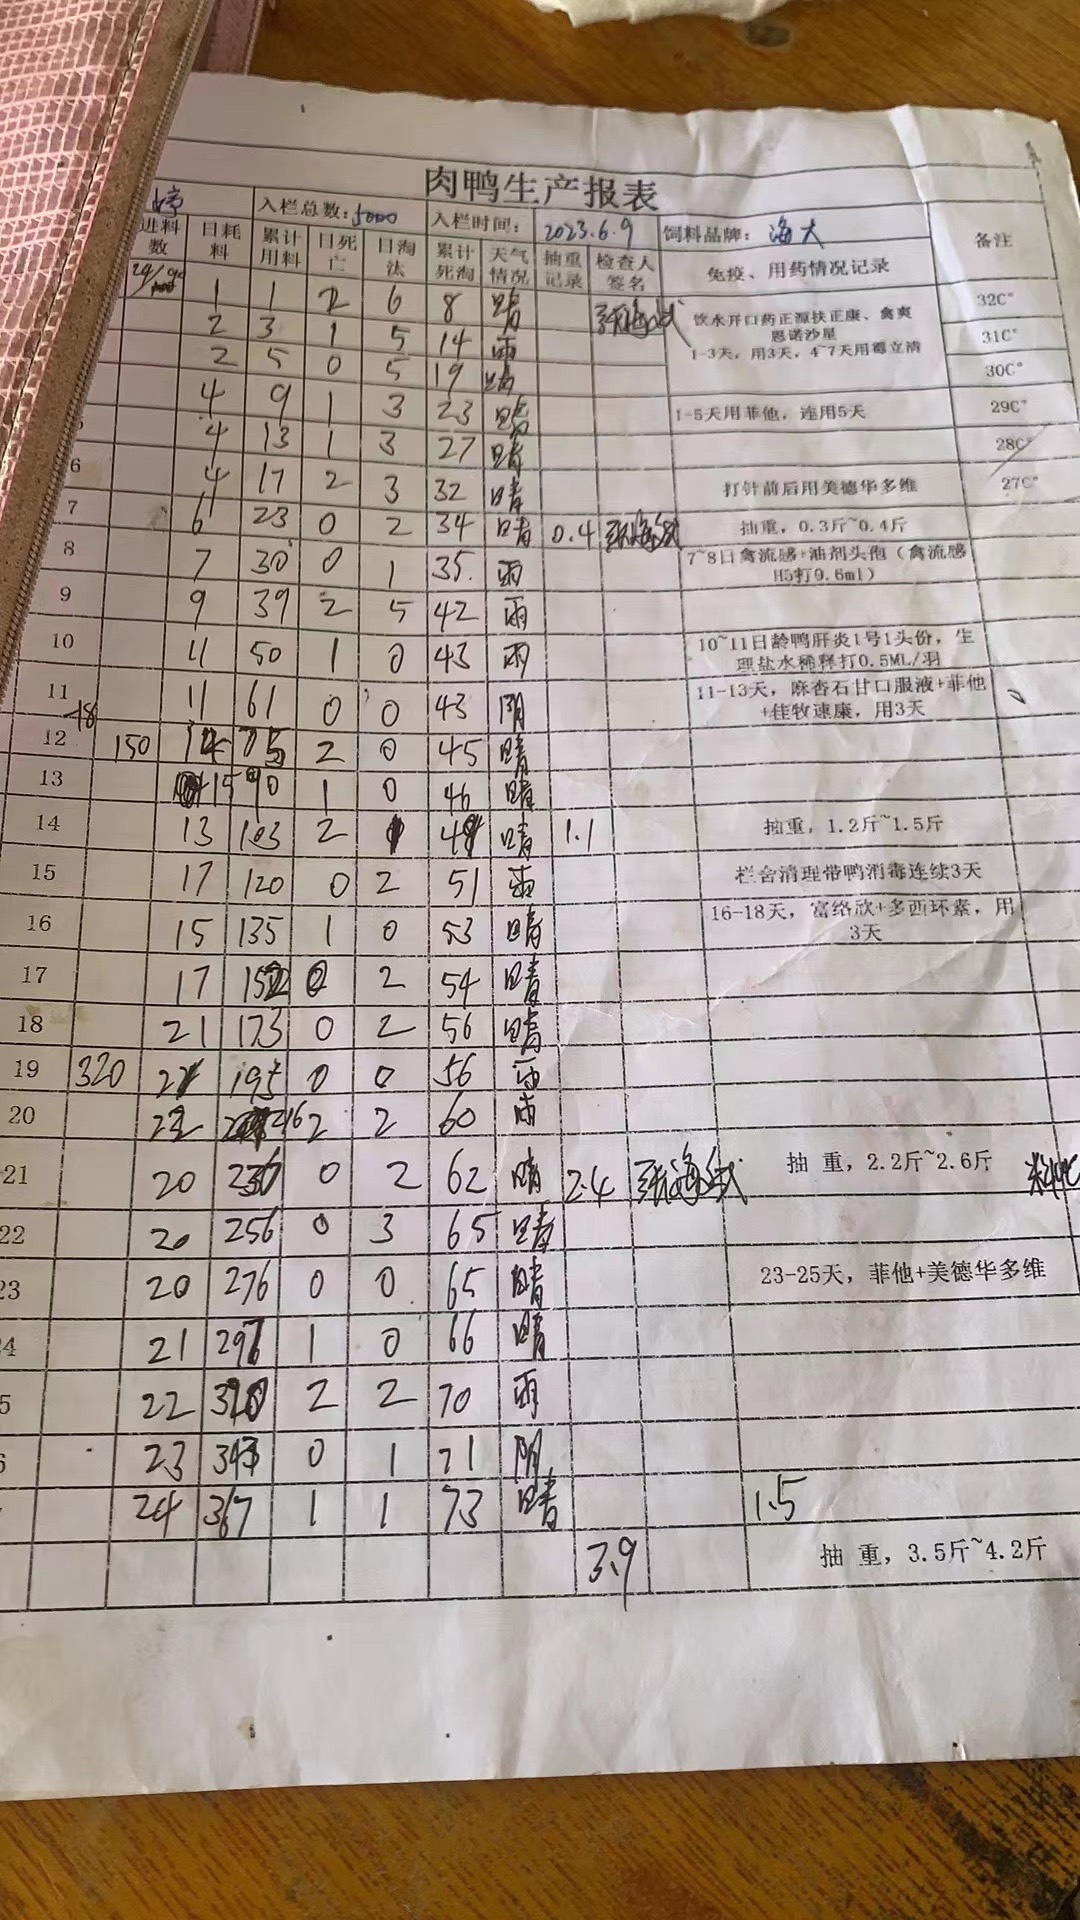 肉鸭生产报表
入栏总数: 5000 入栏时间: 2023.6.9 饲料品牌: 海大 备注
进料数 日耗料 累计用料 日死亡 日淘汰 累计死淘 天气情况 抽重记录 检查人签名 免疫、用药情况记录
1 1 2 6 8 晴 饮水开口药正源扶正康、禽爽恩诺沙星 32C°
2 3 1 5 14 雨 1-3天，用3天，4~7天用霉立清 31C°
2 5 0 5 19 晴 30C°
4 9 1 3 23 晴 1-5天用菲他，连用5天 29C°
4 13 1 3 27 晴 28C°
6 4 17 2 3 32 晴 打针前后用美德华多维 27C°
7 6 23 0 2 34 晴 0.4 抽重，0.3斤~0.4斤
8 7 30 0 1 35 雨 7~8日禽流感+油剂头孢（禽流感H5打0.6ml）
9 9 39 2 5 42 雨
10 11 50 1 0 43 雨 10~11日龄鸭肝炎1号1头份，生理盐水稀释打0.5ML/羽
11 11 61 0 0 43 阴 11-13天，麻杏石甘口服液+菲他+佳牧速康，用3天
12 150 14 75 2 0 45 晴
13 15 90 1 0 46 晴
14 13 103 2 晴 1.1 抽重，1.2斤~1.5斤
15 17 120 0 2 51 雨 栏舍清理带鸭消毒连续3天
16 15 135 1 0 53 晴 16-18天，富络欣+多西环素，用3天
17 17 152 0 2 54 晴
18 21 173 0 2 56 晴
19 320 195 0 0 56 雨
20 22 216 2 2 60 雨
21 20 236 0 2 62 晴 2.4 抽 重，2.2斤~2.6斤
22 20 256 0 3 65 晴
23 20 276 0 0 65 晴 23-25天，菲他+美德华多维
4 21 297 1 0 66 晴
5 22 320 2 2 70 雨
23 343 0 1 71 阴
24 367 1 1 73 晴 1.5
3.9 抽 重，3.5斤~4.2斤